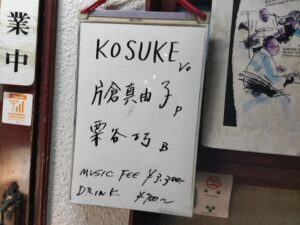 業中
KOSUKE Vo
片倉真由子 P
粟谷巧 B
MUSIC FEE ¥3,300~
DRINK ¥700~